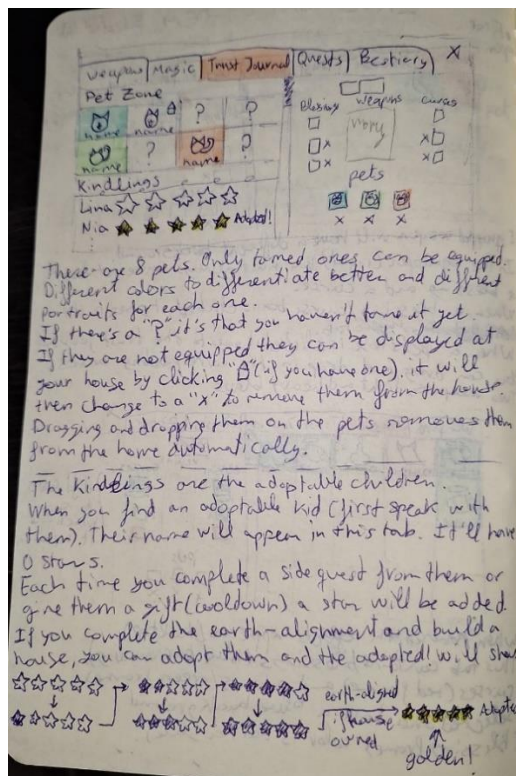 Weapons Magic Trust Journal Quests Bestiary X
Pet Zone
name name ? ?
name ? name ?
Kindlings
Lina
Nia Adopted!
Blessings weapons curses
x x
x x
pets
x x x
There are 8 pets. Only tamed ones can be equipped.
Different colors to differentiate better and different
portraits for each one.
If there's a "?" it's that you haven't tame it yet.
If they are not equipped they can be displayed at
your house by clicking " " (if you have one). it will
then change to a "x" to remove them from the house.
Dragging and dropping them on the pets removes them
from the home automatically.
The Kindlings are the adoptable children.
When you find an adoptable kid (first speak with
them). Their name will appear in this tab. It'll have
0 stars.
Each time you complete a side quest from them or
give them a gift (cooldown) a star will be added
If you complete the earth-alignment and build a
house, you can adopt them and the adopted! will show
earth-aligned
if house
owned
Adopted
golden!